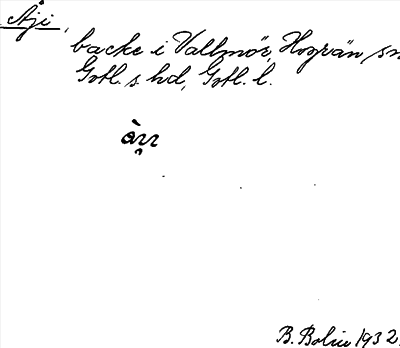 Åji,
backe i Vallmör, Hogrän sn
Gotl. s hd, Gotl. l.
B. Bolin 1932.